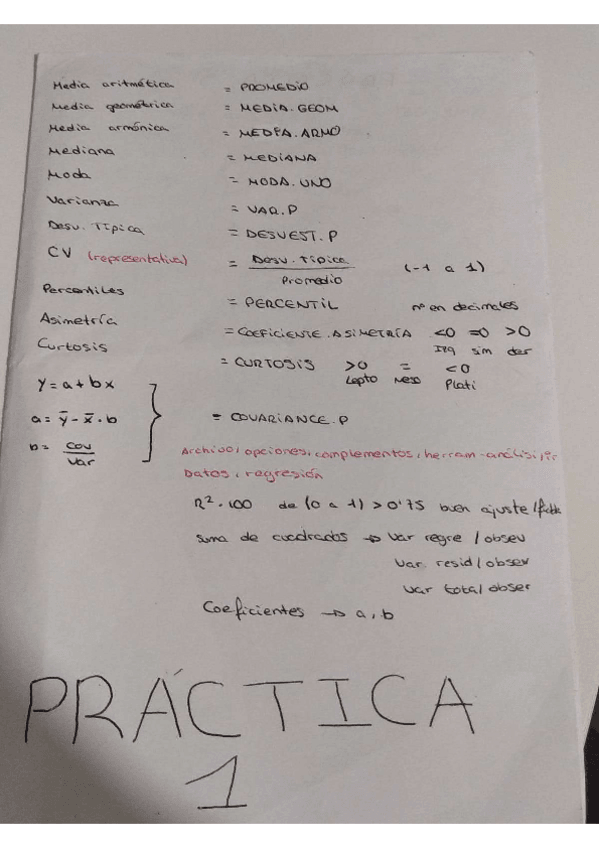 Media aritmética = PROMEDIO
Media geométrica = MEDIA.GEOM
Media armónica = MEDIA.ARMO
Mediana = MEDIANA
Moda = MODA.UNO
Varianza = VAR.P
Desv. Típica = DESVEST.P
CV (representativa) = Desv. Típica / Promedio (-1 a 1)
Percentiles = PERCENTIL nº en decimales
Asimetría = COEFICIENTE.ASIMETRÍA <0 =0 >0
izq sim der
Curtosis = CURTOSIS >0 = <0
Lepto Meso Plati
y = a + bx
a = ȳ - x̄ · b = COVARIANCE.P
b = cov / var
Archivo, opciones, complementos, herram-análisi, ir
Datos, regresión
R²·100 de (0 a 1) >0'75 buen ajuste/fiable
suma de cuadrados → var regre / obsev
var resid / obsev
var total obser
Coeficientes → a, b
PRÁCTICA
1